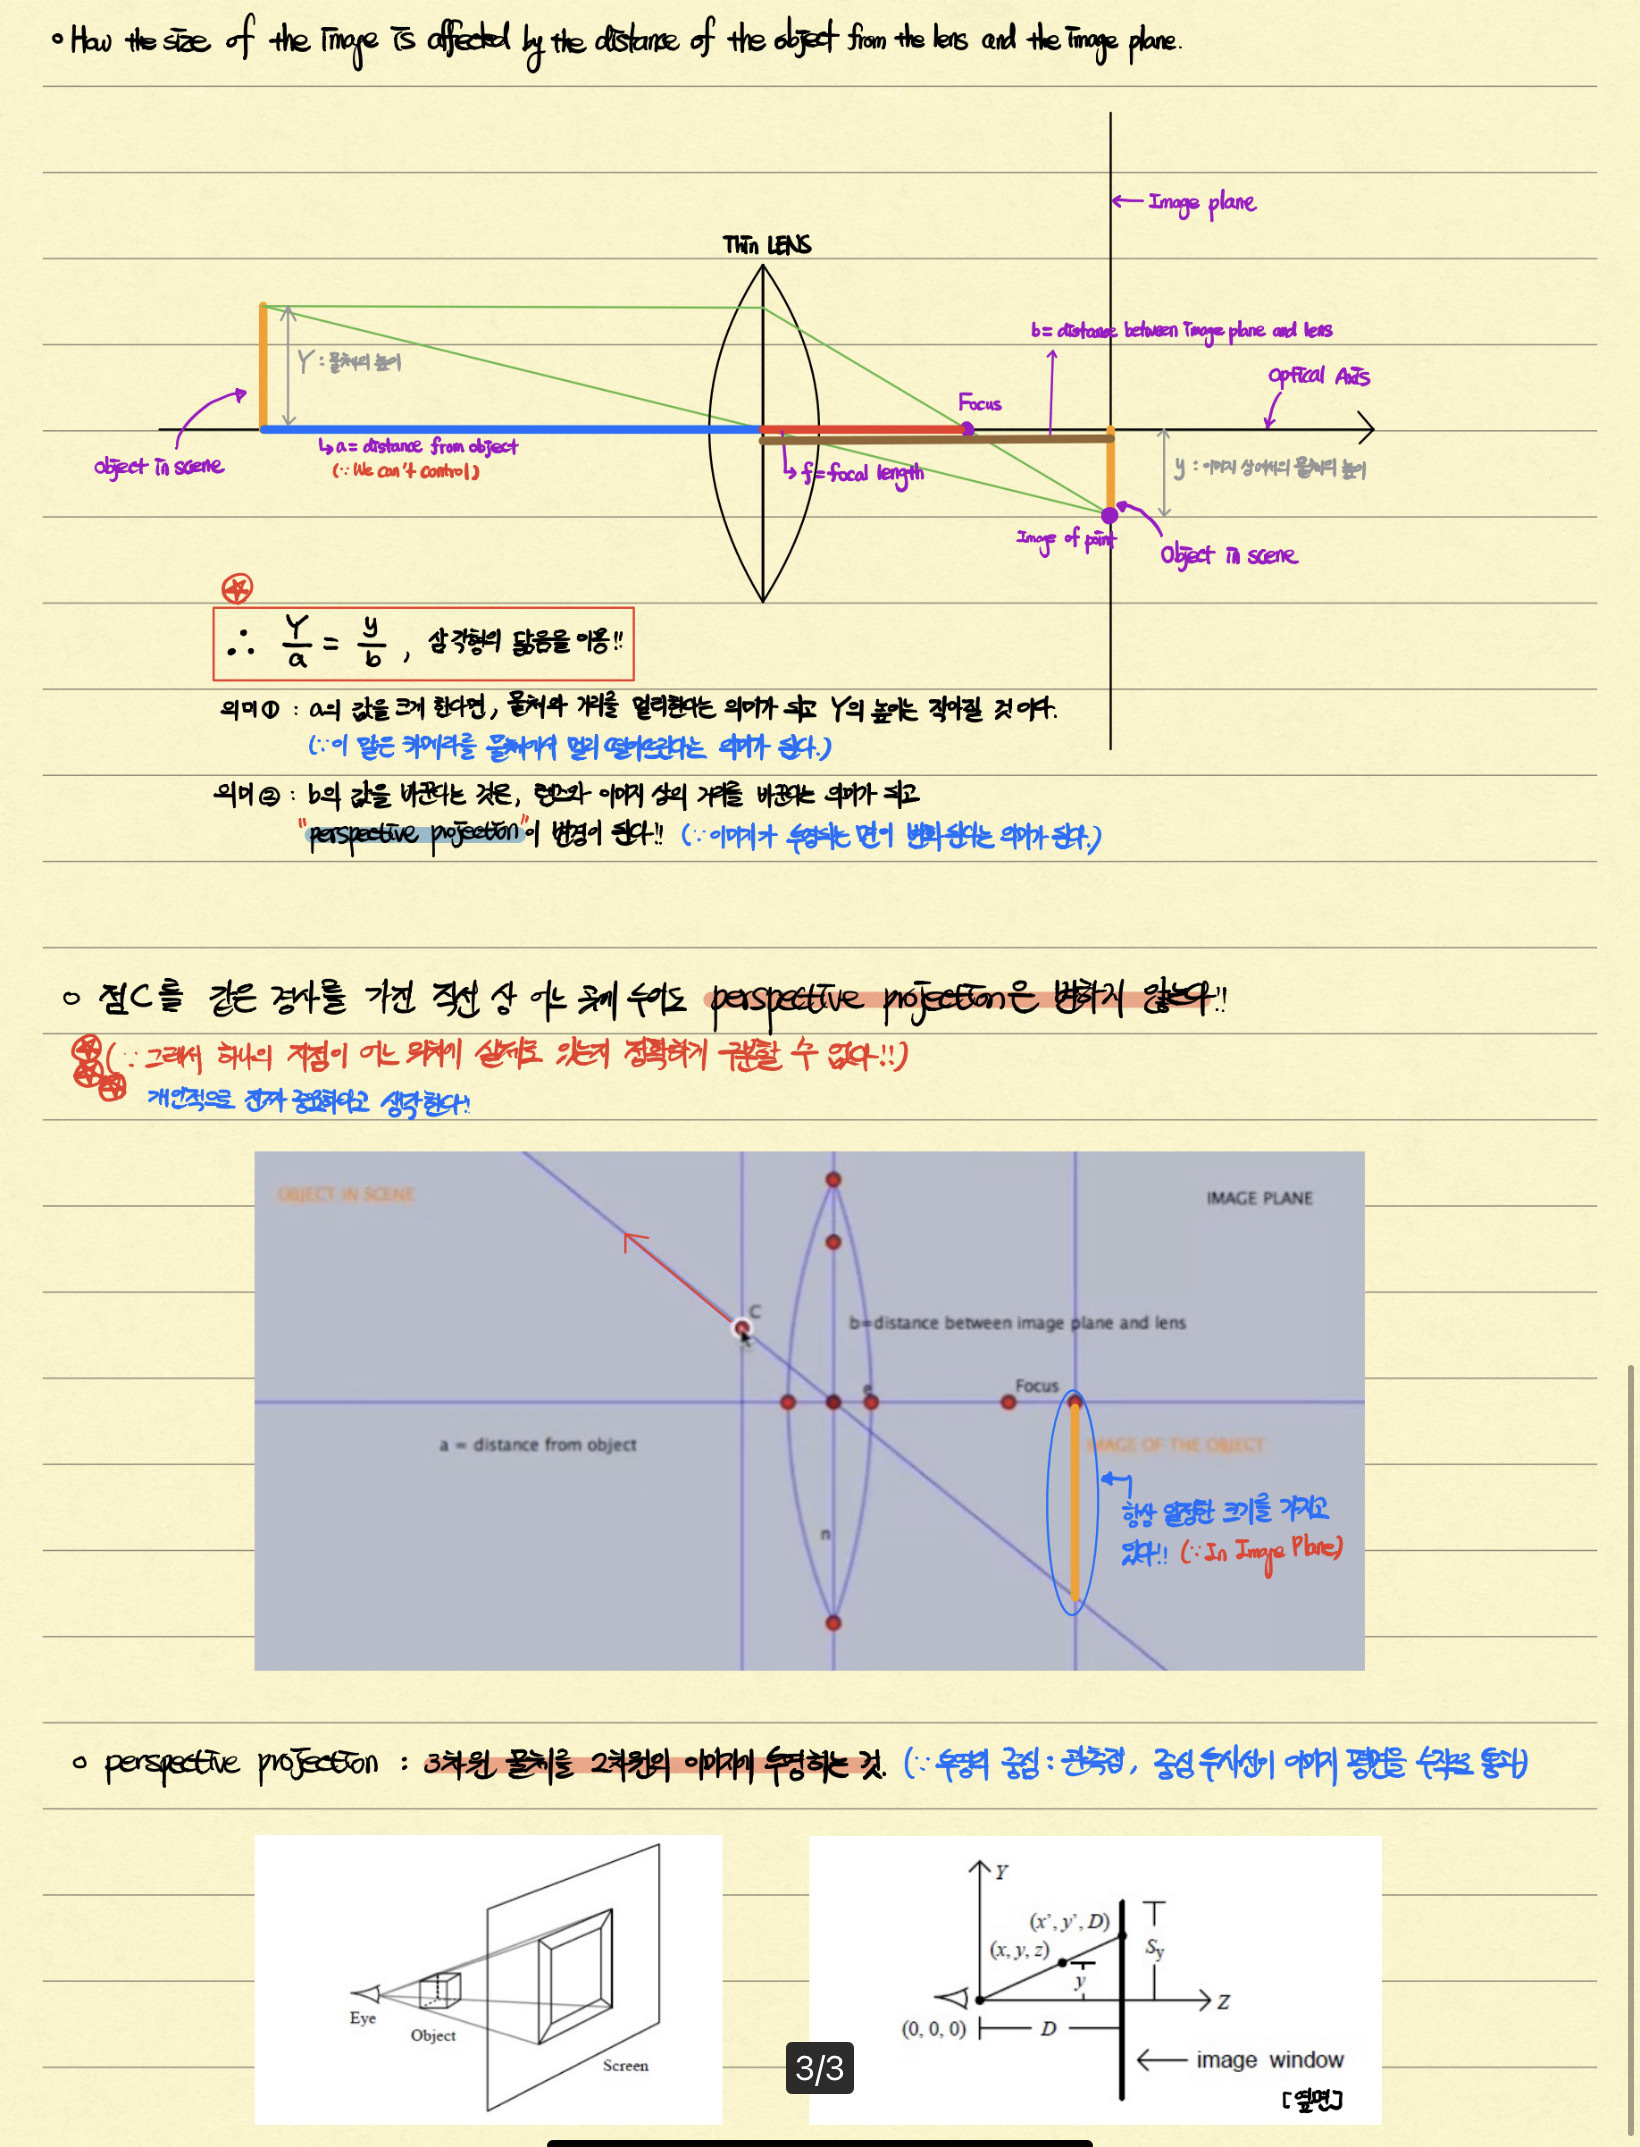 How the size of the image is affected by the distance of the object from the lens and the image plane.
Image plane
Thin LENS
b = distance between image plane and lens
Y : 물체의 높이
Optical Axis
Focus
↳ a = distance from object
(∵ We can't control)
Object in scene
↳ f = focal length
y : 이미지 상에서의 물체의 높이
Image of point
Object in scene
∴ Y/a = y/b , 삼각형의 닮음을 이용!!
의미① : a의 값을 크게 한다면, 물체와 거리를 멀리한다는 의미가 되고 Y의 높이는 작아질 것이다.
(∵ 이 말은 카메라를 물체에서 멀리 떨어뜨린다는 의미가 된다.)
의미② : b의 값을 바꾼다는 것은, 렌즈와 이미지 상의 거리를 바꾼다는 의미가 되고
"perspective projection"이 변경이 된다!! (∵ 이미지가 투영되는 면이 변화된다는 의미가 된다.)
점C를 같은 경사를 가진 직선 상 어느 곳에 두어도 perspective projection은 변하지 않는다!!
(∵ 그래서 하나의 지점이 어느 위치에 실제로 있는지 정확하게 구분할 수 없다!!)
개인적으로 진짜 중요하다고 생각한다!!
OBJECT IN SCENE
IMAGE PLANE
C
b=distance between image plane and lens
e
Focus
a = distance from object
IMAGE OF THE OBJECT
항상 일정한 크기를 가지고
있다!! (∵ In Image Plane)
n
perspective projection : 3차원 물체를 2차원의 이미지에 투영하는 것. (∵ 투영의 중심 : 관측점, 중심 투사선이 이미지 평면을 수직으로 통과)
Eye
Object
Screen
Y
(x', y', D)
(x, y, z)
Sy
y
Z
(0, 0, 0)
D
image window
[옆면]
3/3